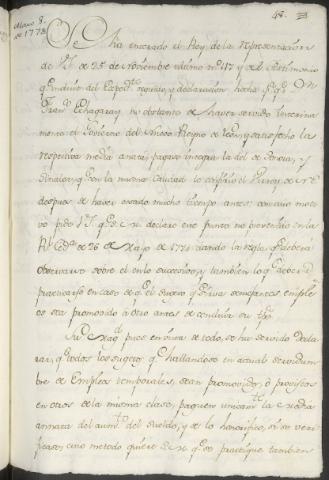 Marzo 8.
de 1778
48.
Se ha enterado el Rey de la representacion
de V.I. de 25 de Noviembre ultimo nº 17 y del Testimonio
que incluie del Expedte seguido, y declaracion hecha pa qe Dn
Franco Echagaray no obstante de haver servido interina
mente el Govierno del Nuevo Reyno de Leon y satisfecho la
respectiva media anata, pagase integra la del de Sonora, y
Sinaloa, que con la misma calidad le confirió el Virrey de Nª Eª
despues de haver cesado mucho tiempo antes: con cuio moti
vo pide V.I. que se declare este punto no prevenido en la
Rl Cedª de 26 de Mayo de 1774 dando la regla qe deverá
observarse sobre el en lo succesivo, y tambien lo qe deberá
practicarse en caso de qe el sugeto que sirva semejantes emple
os sea promovido á otro antes de concluir su tpo.
Su Magd pues enterado de todo, se ha servido decla
rar, qe todos los sugetos qe hallandose en actual servidum
bre de Empleos temporales, sean promovidos, ó provistos
en otros de la misma clase, paguen unicamte la media
annata del aumto del sueldo, y de lo honorifico, si se veri
ficase; cuio metodo quiere S.M. que se practique tambien